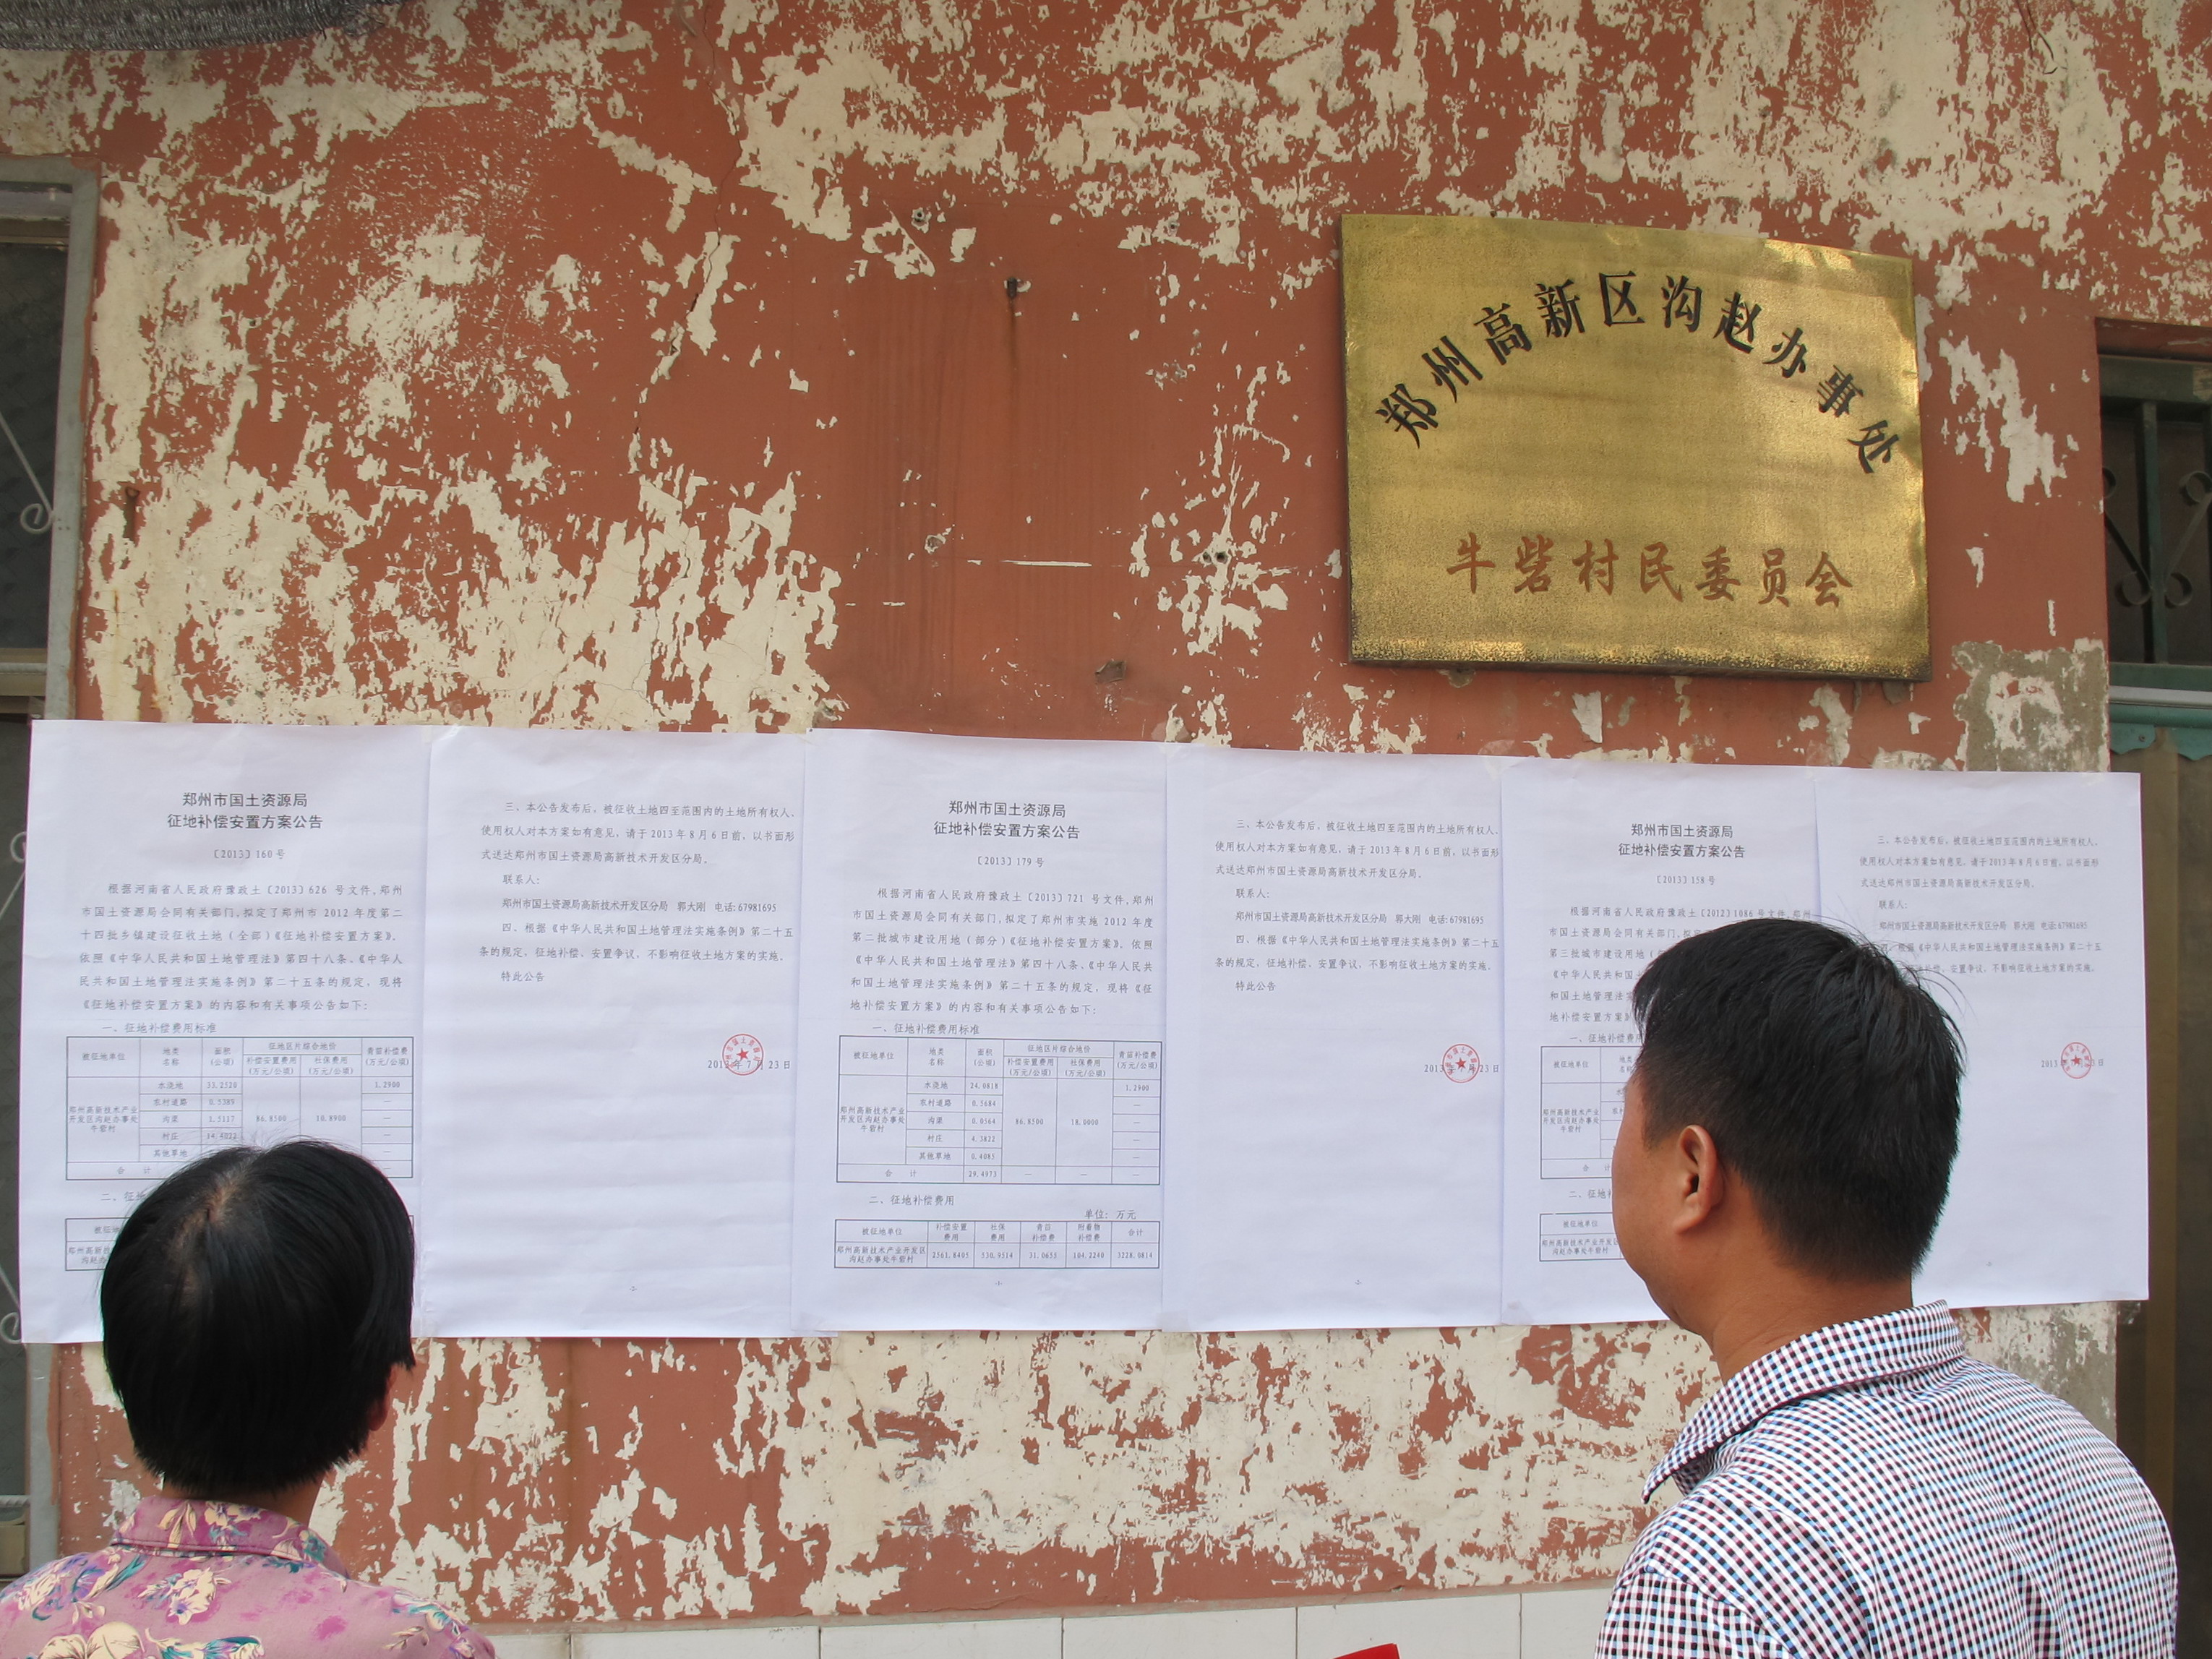 郑州高新区沟赵办事处
牛砦村民委员会
郑州市国土资源局
征地补偿安置方案公告
〔2013〕160号
根据河南省人民政府豫政土〔2013〕626 号文件,郑州
市国土资源局会同有关部门,拟定了郑州市 2012 年度第二
十四批乡镇建设征收土地(全部)《征地补偿安置方案》。
依照《中华人民共和国土地管理法》第四十八条、《中华人
民共和国土地管理法实施条例》第二十五条的规定，现将
《征地补偿安置方案》的内容和有关事项公告如下:
一、征地补偿费用标准
被征地单位 地类名称 面积(公顷) 征地区片综合地价 青苗补偿费(万元/公顷)
补偿安置费用(万元/公顷) 社保费用(万元/公顷)
郑州高新技术产业开发区沟赵办事处牛砦村
水浇地 33.2520 86.8500 18.8900 1.2900
农村道路 0.5389 —
沟渠 1.5117 —
村庄 —
其他草地 —
合 计
二、征地
被征地单位
三、本公告发布后，被征收土地四至范围内的土地所有权人、
使用权人对本方案如有意见，请于 2013 年 8 月 6 日前，以书面形
式送达郑州市国土资源局高新技术开发区分局。
联系人:
郑州市国土资源局高新技术开发区分局 郭大刚 电话:67981695
四、根据《中华人民共和国土地管理法实施条例》第二十五
条的规定，征地补偿、安置争议，不影响征收土地方案的实施。
特此公告
2013年7月23日
郑州市国土资源局
征地补偿安置方案公告
〔2013〕179 号
根据河南省人民政府豫政土〔2013〕721 号文件,郑州
市国土资源局会同有关部门,拟定了郑州市实施 2012 年度
第二批城市建设用地(部分)《征地补偿安置方案》。依照
《中华人民共和国土地管理法》第四十八条、《中华人民共
和国土地管理法实施条例》第二十五条的规定，现将《征
地补偿安置方案》的内容和有关事项公告如下:
一、征地补偿费用标准
被征地单位 地类名称 面积(公顷) 征地区片综合地价 青苗补偿费(万元/公顷)
补偿安置费用(万元/公顷) 社保费用(万元/公顷)
郑州高新技术产业开发区沟赵办事处牛砦村
水浇地 24.0818 86.8500 18.0000 1.2900
农村道路 0.5684 —
沟渠 0.0564 —
村庄 4.3822 —
其他草地 0.4085 —
合 计 29.4973 — — —
二、征地补偿费用
单位: 万元
被征地单位 补偿安置费用 社保费用 青苗补偿费 附着物补偿费 合计
郑州高新技术产业开发区沟赵办事处牛砦村 2561.8405 530.9514 31.0655 104.2240 3228.0814
三、本公告发布后，被征收土地四至范围内的土地所有权人、
使用权人对本方案如有意见，请于 2013 年 8 月 6 日前，以书面形
式送达郑州市国土资源局高新技术开发区分局。
联系人:
郑州市国土资源局高新技术开发区分局 郭大刚 电话:67981695
四、根据《中华人民共和国土地管理法实施条例》第二十五
条的规定，征地补偿、安置争议，不影响征收土地方案的实施。
特此公告
2013年7月23日
郑州市国土资源局
征地补偿安置方案公告
〔2013〕158 号
根据河南省人民政府豫政土〔2012〕1086 号文件,郑州
市国土资源局会同有关部门,拟定
第三批城市建设用地
《中华人民共和国土
和国土地管理法实
地补偿安置方案》
一、征地补偿费用
被征地单位
郑州高新技术产业开发区沟赵办事处牛砦村
合 计
被征地单位
三、本公告发布后，被征收土地四至范围内的土地所有权人、
使用权人对本方案如有意见，请于 2013 年 8 月 6 日前，以书面形
式送达郑州市国土资源局高新技术开发区分局。
联系人:
郑州市国土资源局高新技术开发区分局 郭大刚 电话:67981695
根据《中华人民共和国土地管理法实施条例》第二十五
征地补偿、安置争议，不影响征收土地方案的实施。